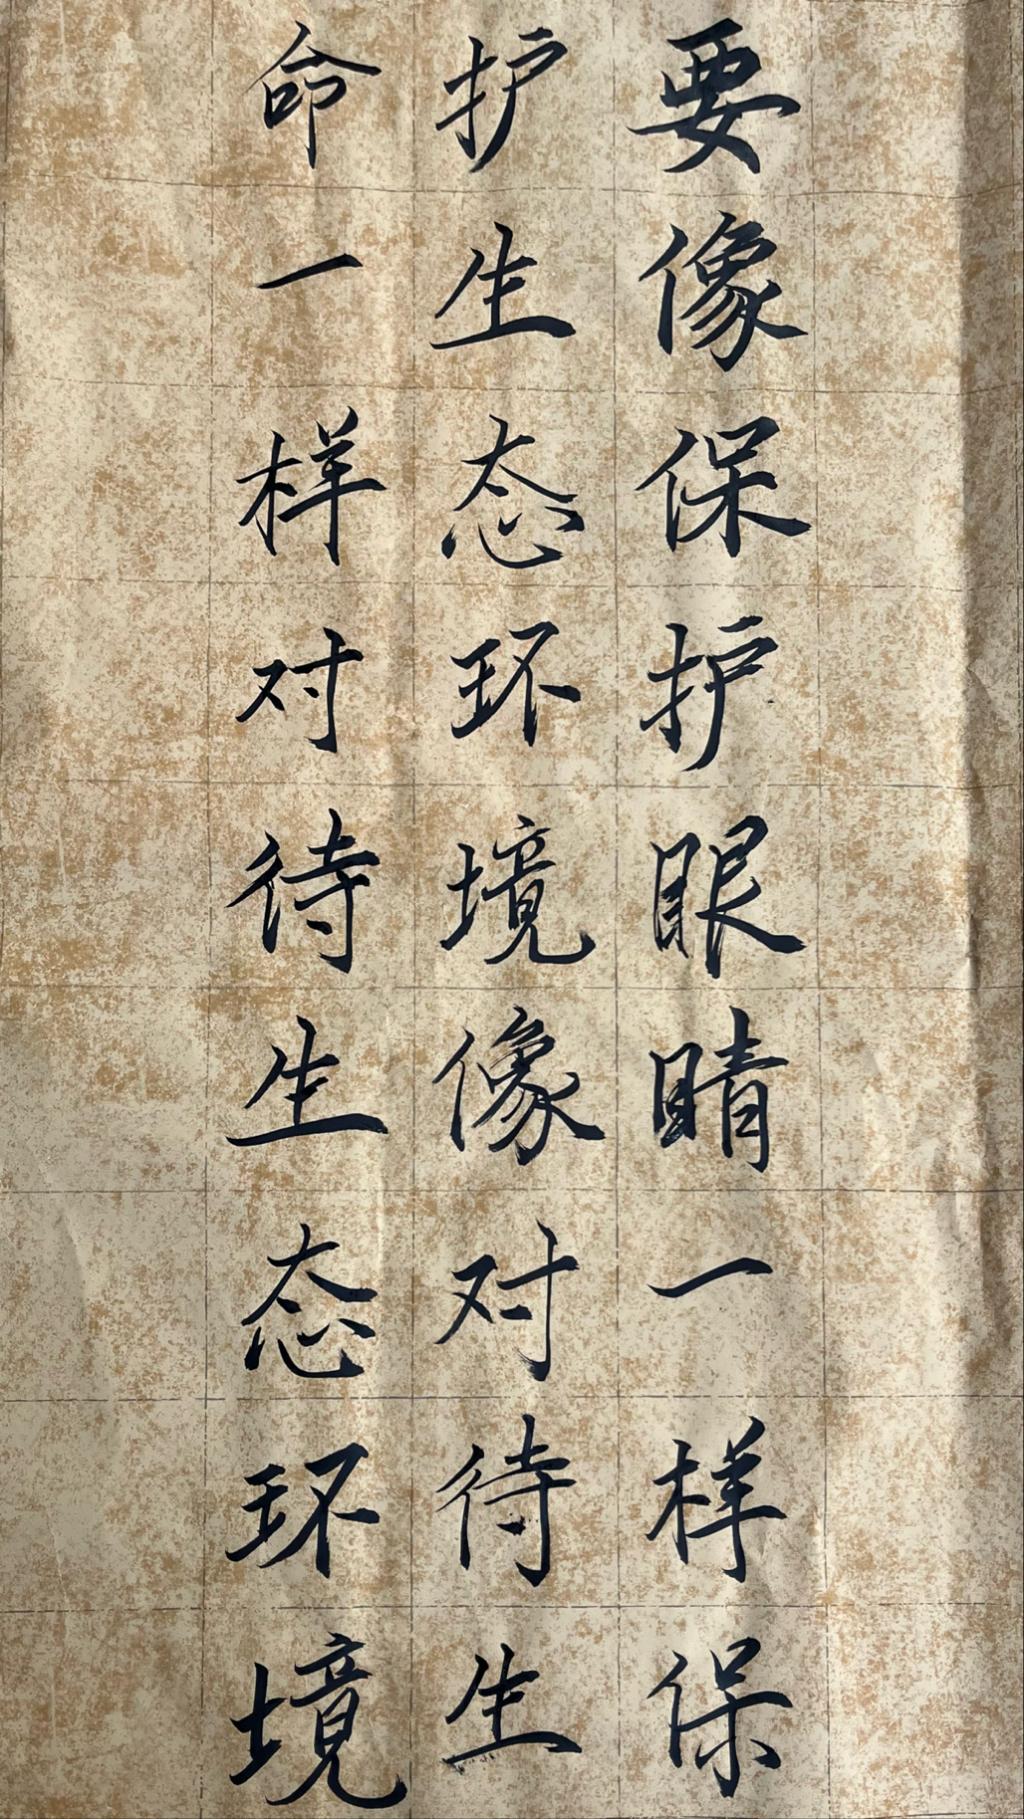 要像保护眼睛一样保
护生态环境像对待生
命一样对待生态环境